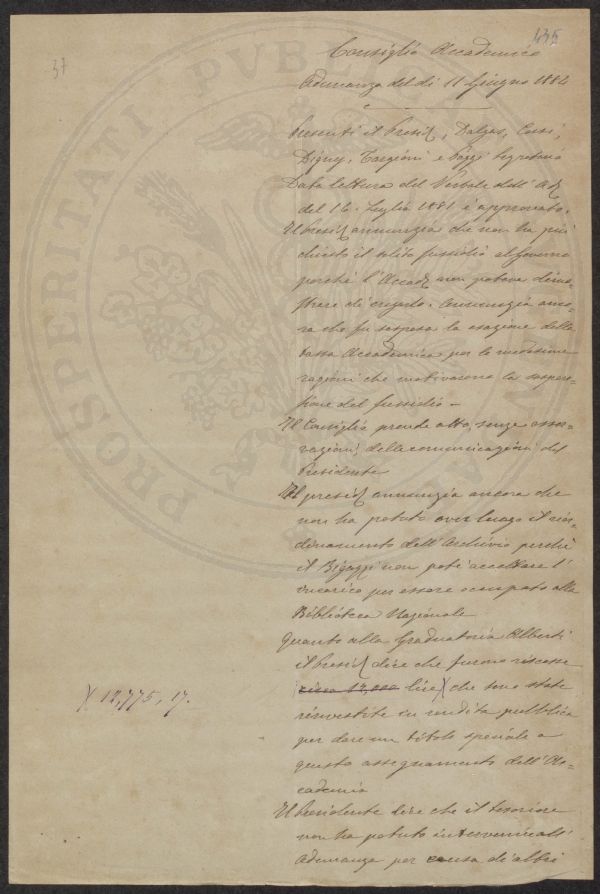 435
37
Consiglio Accademico
Adunanza del dì 11 Giugno 1882
Presenti il Presid, Dalgas, Cossi,
Digny, Targioni e Poggi Segretario
Data lettura del Verbale dell'Ad
del 16. Luglio 1881 è approvato.
Il Presid annunzia che non ha più
chiesto il solito sussidio al Governo
perché l'Accad non poteva dimo=
strare di Annunzia anco=
ra che fu sospesa la esazione della
tassa Accademica per le medesime
ragioni che motivarono la sospen=
sione del sussidio -
Il Consiglio prende atto, senza osser=
vazioni, delle comunicazioni del
Presidente
Il presid annunzia ancora che
non ha potuto aver luogo il rior=
dinamento dell'Archivio perché
il Bigazzi non poté accettare l'
incarico per essere occupato alla
Biblioteca Nazionale
Quanto alla Graduatoria Alberti
il Presid dice che furono riscosse
circa 12,000 lire X che sono state
rinvestite in rendita pubblica
X 12,775,17.
per dare un titolo speciale a
questo assegnamento dell'Ac=
cademia
Il Presidente dice che il tesoriere
non ha potuto intervenire all'
Adunanza per causa di altri
PROSPERITATI PUBL